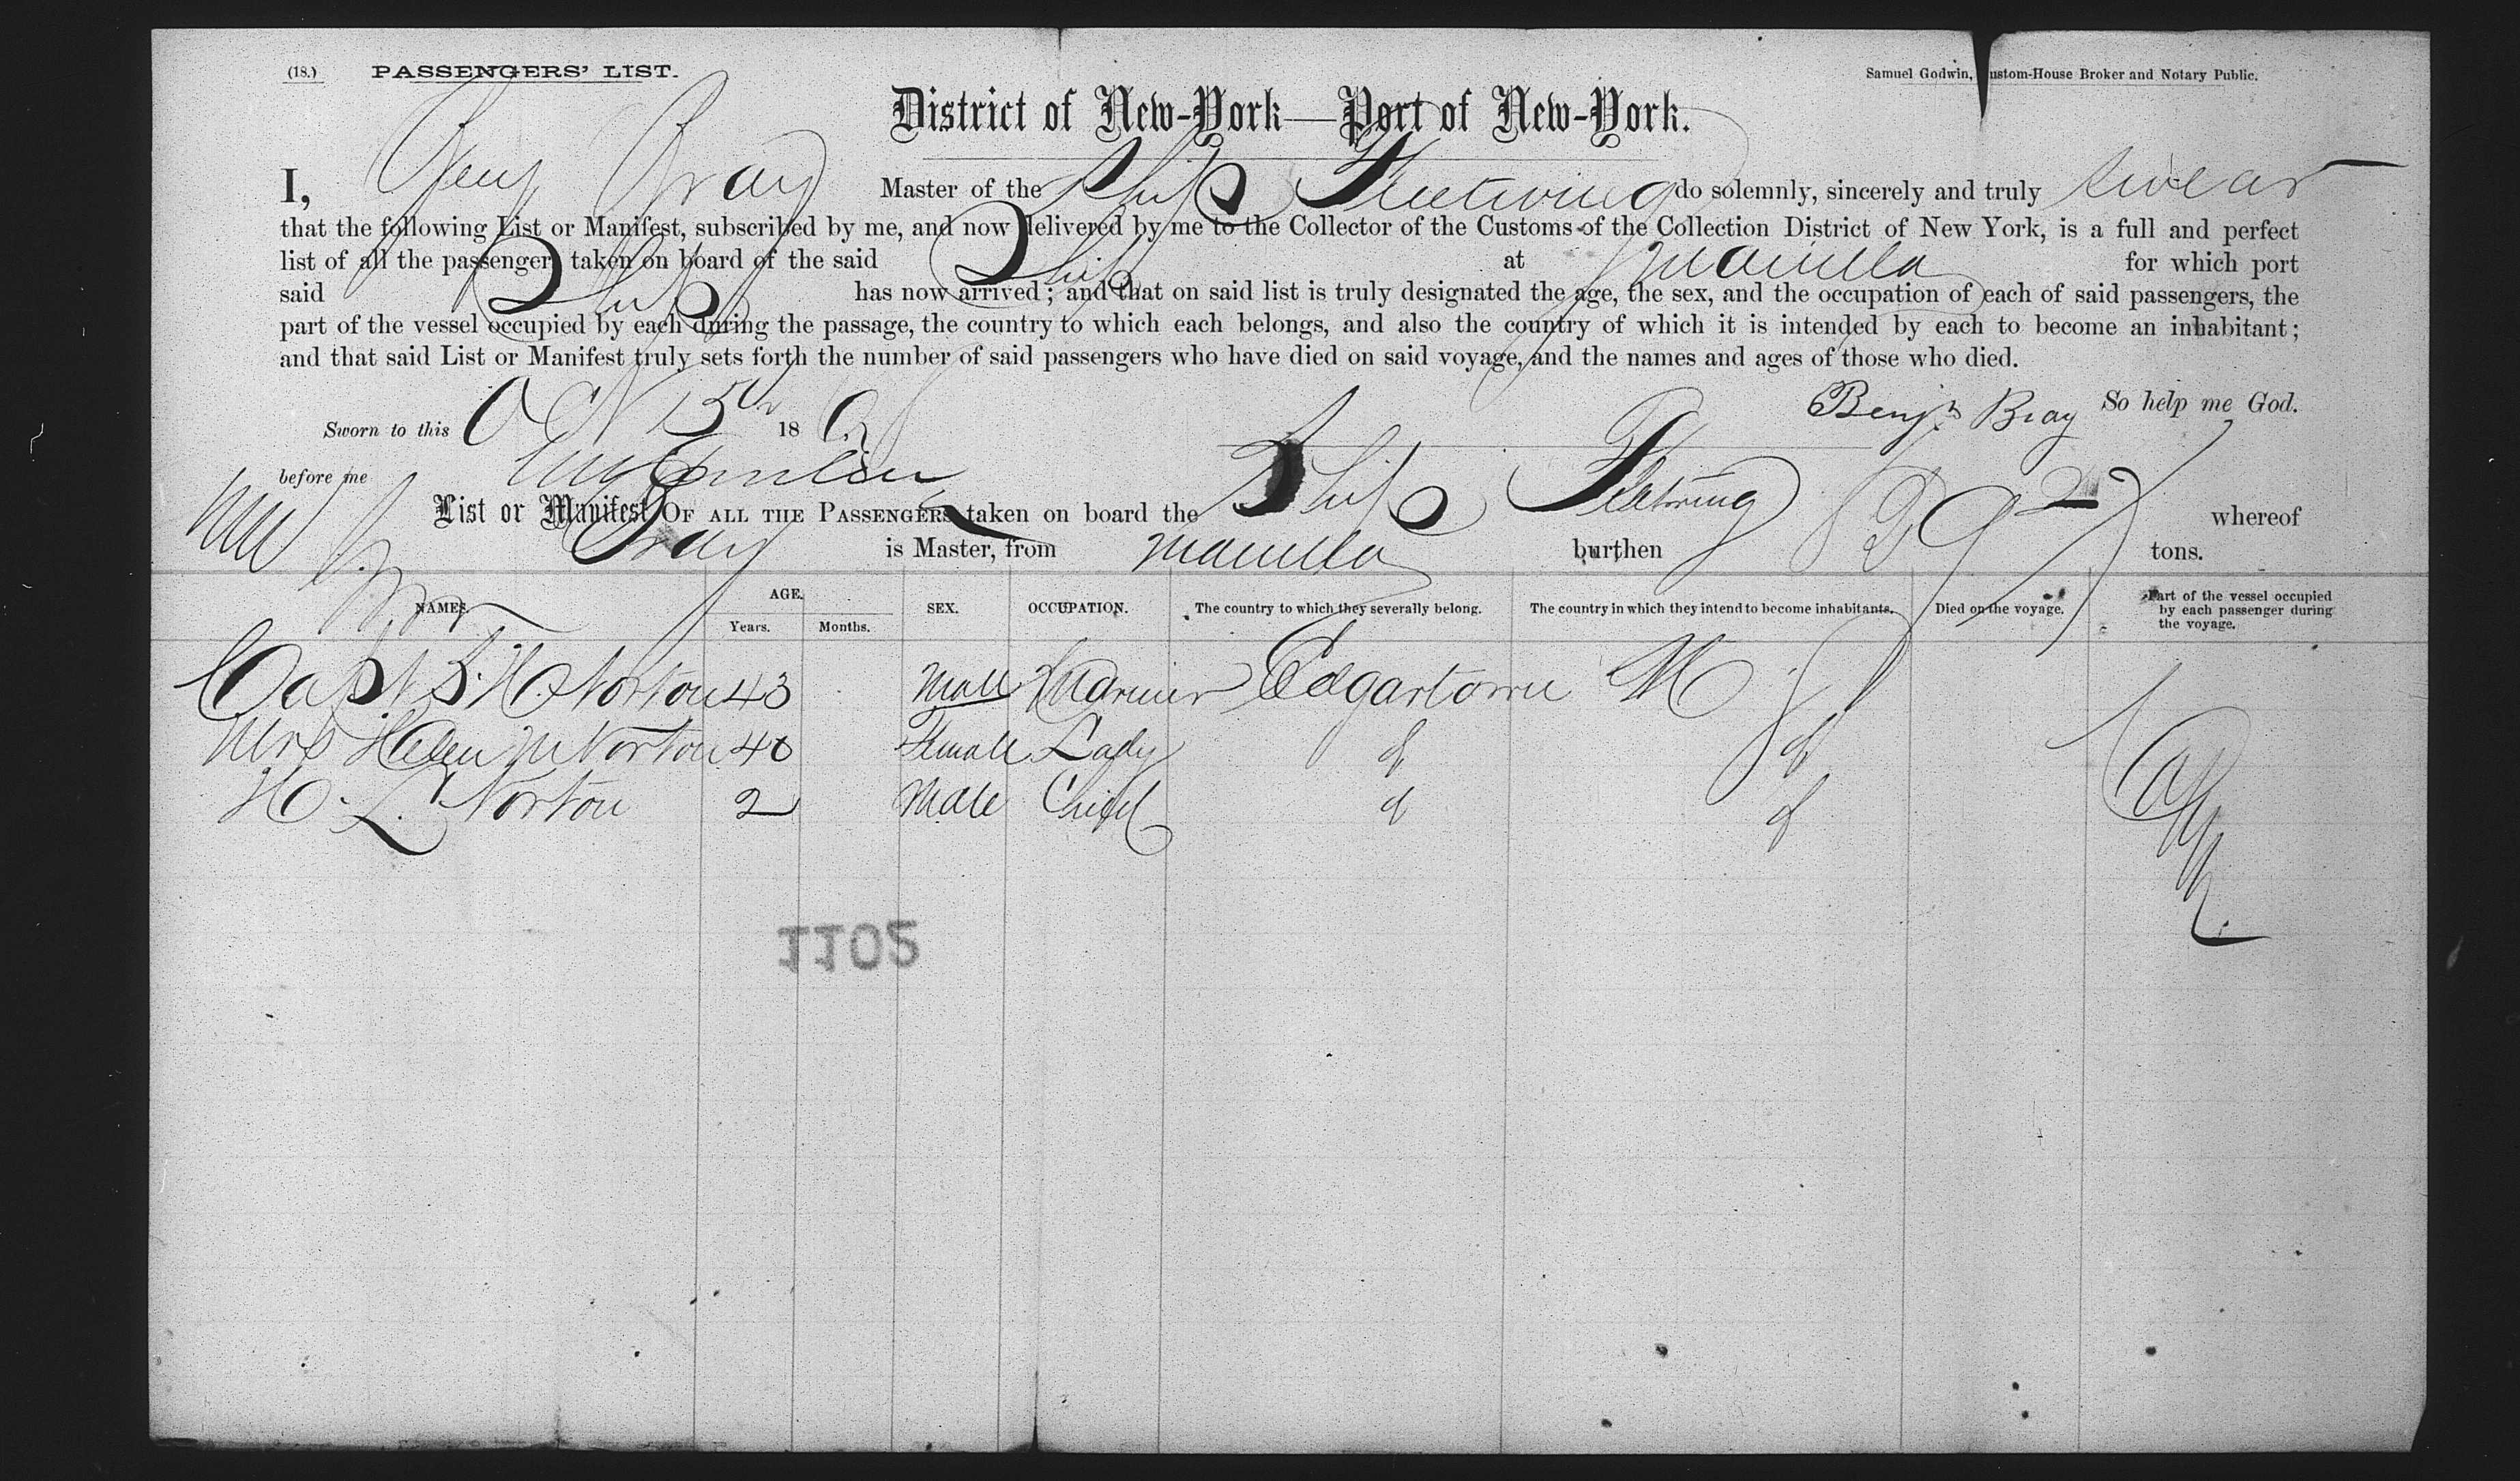 (18.) PASSENGERS' LIST.
Samuel Godwin, Custom-House Broker and Notary Public.
District of New-York—Port of New-York.
I, Benj Bray Master of the Ship Fleetwing do solemnly, sincerely and truly swear
that the following List or Manifest, subscribed by me, and now delivered by me to the Collector of the Customs of the Collection District of New York, is a full and perfect
list of all the passengers taken on board of the said Ship at Manilla for which port
said Ship has now arrived; and that on said list is truly designated the age, the sex, and the occupation of each of said passengers, the
part of the vessel occupied by each during the passage, the country to which each belongs, and also the country of which it is intended by each to become an inhabitant;
and that said List or Manifest truly sets forth the number of said passengers who have died on said voyage, and the names and ages of those who died.
Benjn Bray So help me God.
Sworn to this Oct 15th 18
before me
List or Manifest OF ALL THE PASSENGERS taken on board the Ship Fleetwing whereof
Bray is Master, from Manilla burthen tons.
NAMES. AGE. SEX. OCCUPATION. The country to which they severally belong. The country in which they intend to become inhabitants. Died on the voyage. Part of the vessel occupied by each passenger during the voyage.
Years. Months.
Capt S. H. Norton 43 Male Mariner Edgartown M
Mrs Helen M Norton 40 Female Lady do do
H. L. Norton 2 Male Child do do
1102